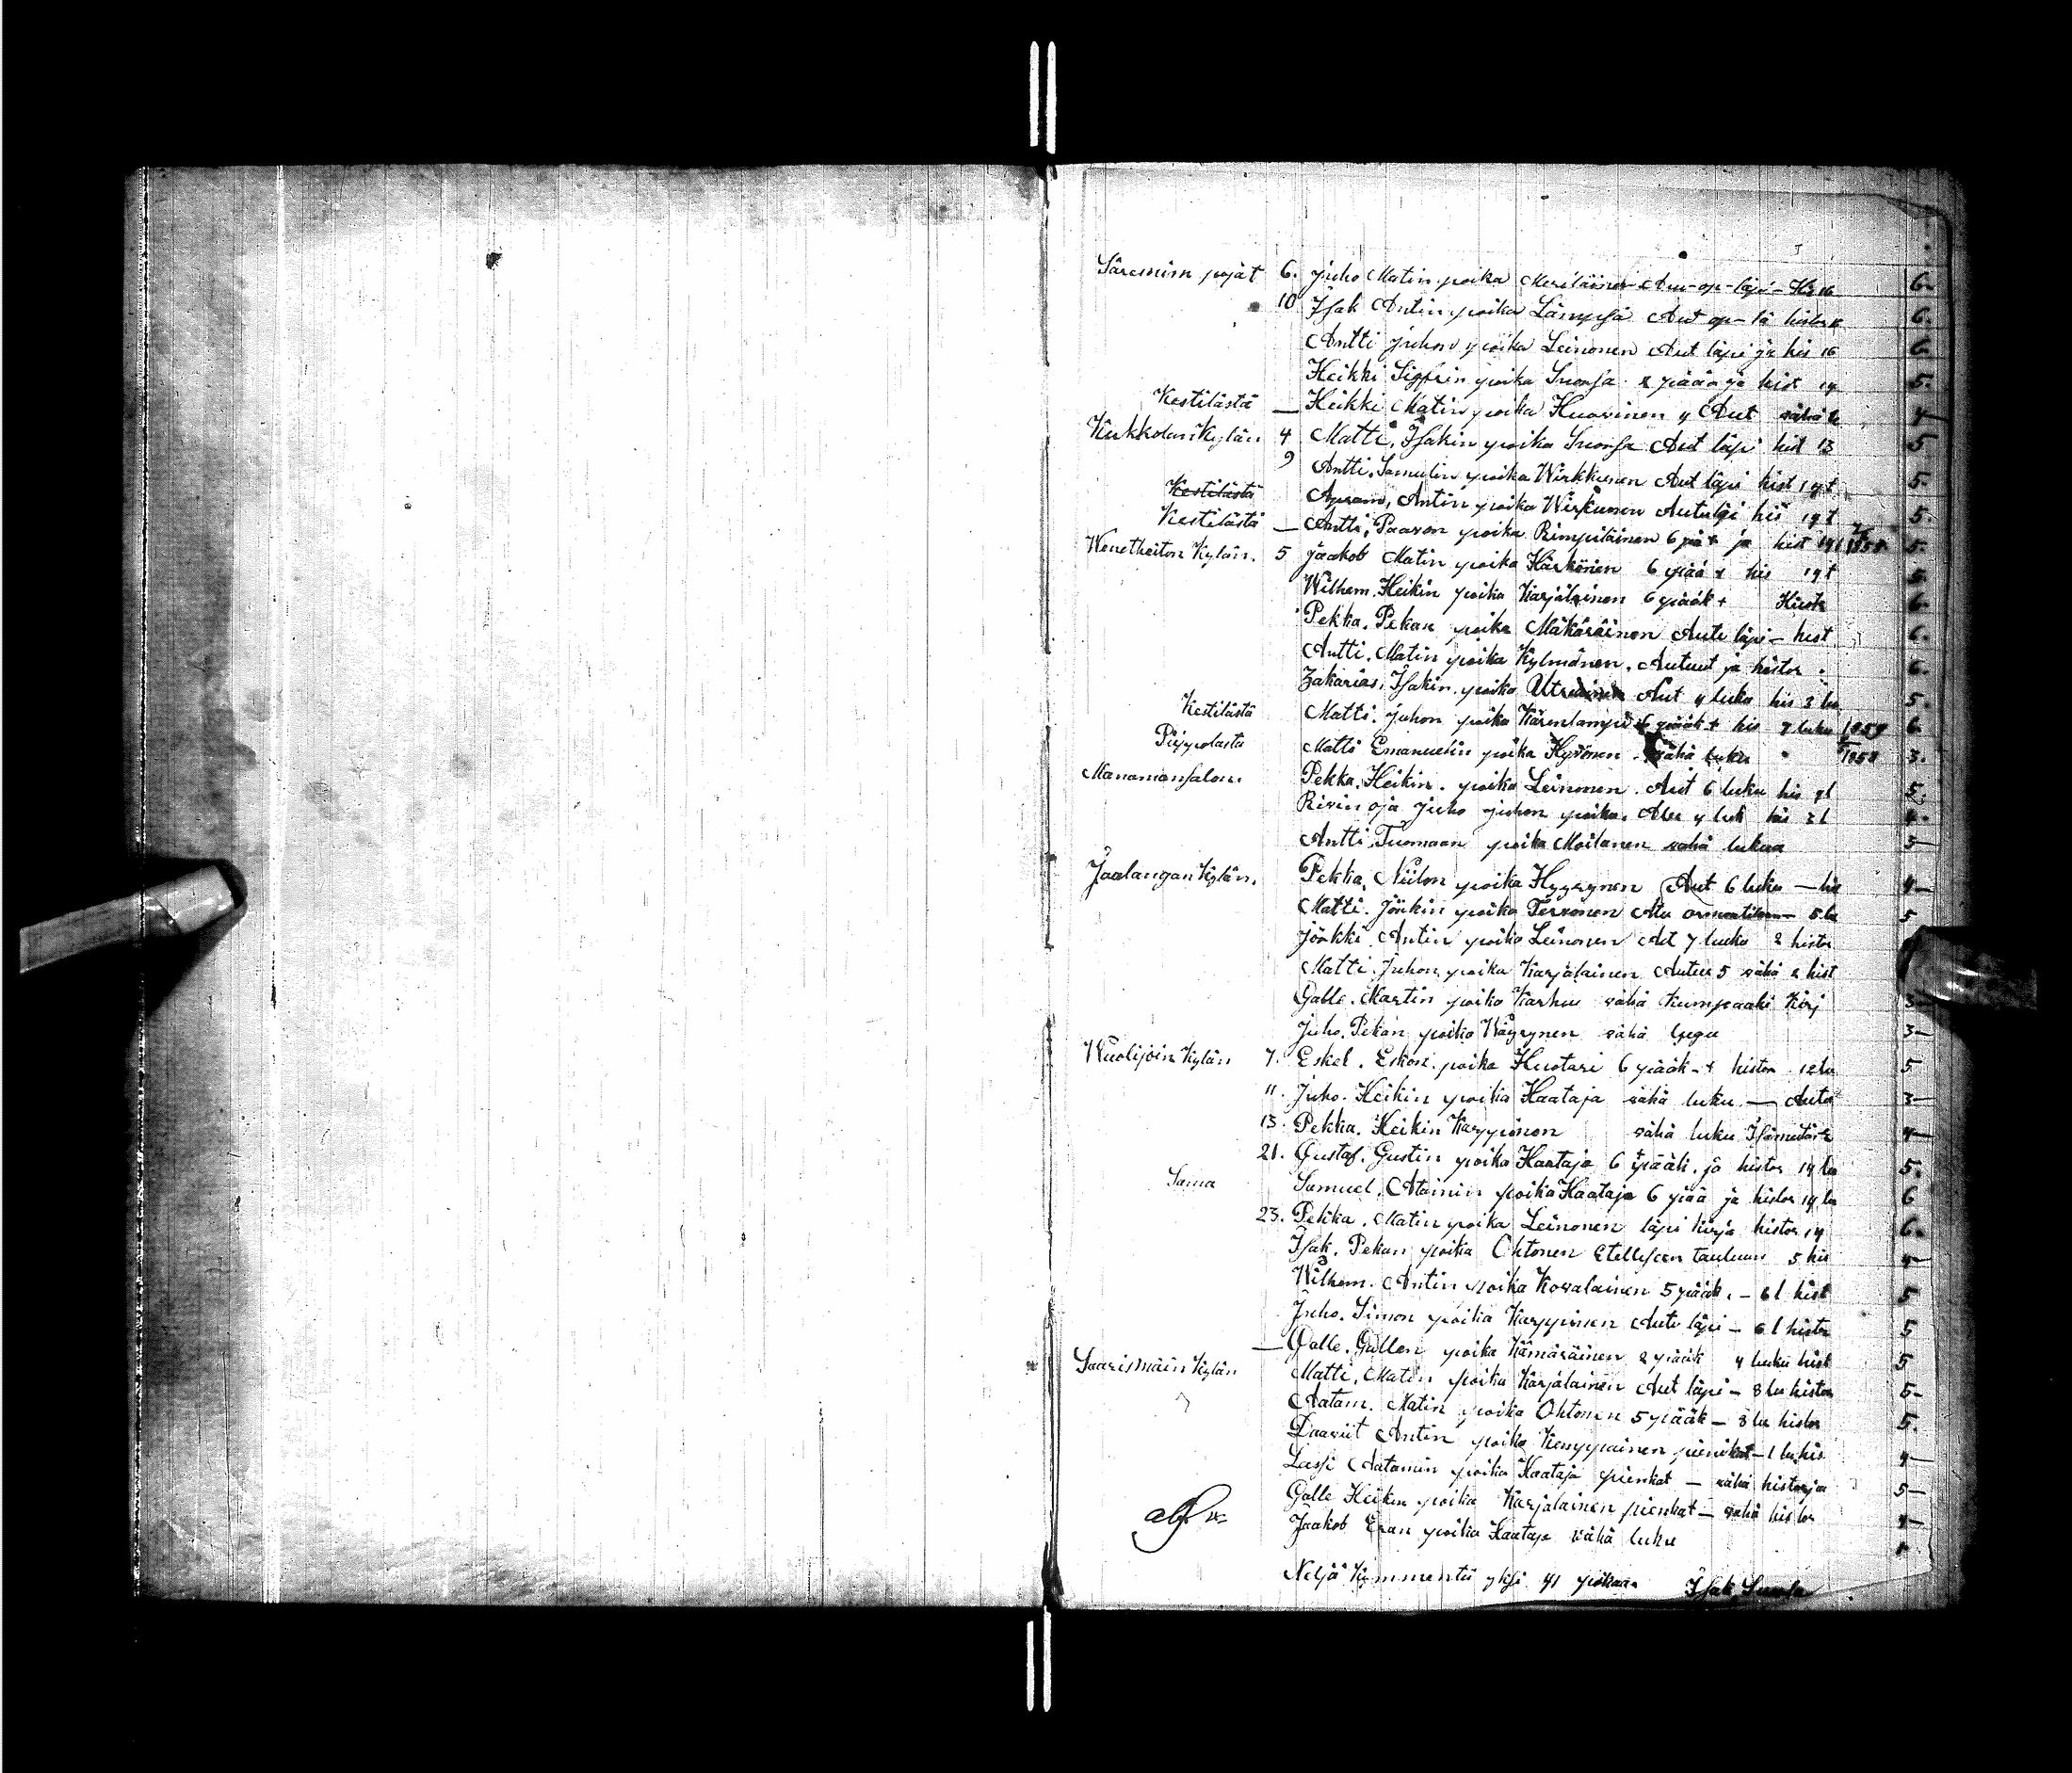 Säresnim pojat 6. Juho Matin poika Meriläinen Au-op-läpi- His 16 6.
10 Isak Antin poika Lämpsä Aut op-lä histor 6.
Antti Juhon poika Leinonen Aut läpi ja his 16 6
Heikki Sigfrin poika Suorsa 2 pään ja hist 14 5.
Kestilästä — Heikki Matin poika Huovinen 4 Aut vähä 4
Kukkolan Kylän 4 Matti, Isakin poika Suorsa Aut läpi hist 13 5
9 Antti. Samulin poika Wirkkunen Aut läpi hist 14 t 5.
Kestilästä Apram, Antin poika Wirkunen Autuläpi his 14 t 5.
Kestilästä — Antti, Paavon poika Rimpiläinen 6 pä + ja hist 5.
Wenetheiton Kylän. 5 Jaakob Matin poika Härkönen 6 pää + his 14 t 5
Wilhem. Heikin poika Karjalainen 6 pääk + 6.
Pekka. Pekan poika Mäkäräinen Autu läpi - hist 6.
Antti. Matin poika Kylmänen. Autuut ja histor 6.
Zakarias. Isakin poika Aut 4 luku his 3 lu 5.
Kestilästä Matti. Juhon poika Kärenlampi 6 pääk + his 7 luku 6.
Piippolasta Matti Emanuelin poika Hyvönen vähä luku 1858 3.
Manamansalon. Pekka. Heikin. poika Leinonen. Aut 6 luku his 5.
Rivinoja Juho Juhon poika. Alu 4 luk his 3 l 4.
Antti, Tuomaan poika Moilanen vähä lukua 3
Jaalangan Kylän. Pekka, Niilon poika Hyyrynen Aut 6 luku — his 4-
Matti. Jörkin poika Tervonen Alu 5 lu 5
Jörkki Antin poika Leinonen Aut 7 luku 2 histor
Matti. Juhon poika Karjalainen Autuu 5 vähä 2 hist
Galle. Martin poika Karhu vähä kumpaaki kirj 3-
Juho. Pekan poika Wäyrynen vähä lugu 3-
Wuolijoin Kylän 7. Eskel. Eskon. poika Huotari 6 pääk-+ histor 12 lu 5
11. Juho. Heikin poika Haataja vähä luku — Auto 3-
13. Pekka. Heikin Karppinon vähä luku 4-
21. Gustaf. Gustin poika Haataja 6 pääk. ja histor 14 lu 5.
Sama Samuel. Atamin poika Haataja 6 pää ja histor 14 lu 6
23. Pekka. Matin poika Leinonen läpi kirja histor 14 6.
Isak. Pekan poika Ohtonen taulun 5 his 4-
Wilhem. Antin poika Kovalainen 5 pääk. - 6 l hist 5
Juho. Simon poika Karppinen Autu läpi - 6 l histor 5
— Galle. Gallen poika Kämäräinen 2 pääk 4 luku hist 5
Saarismäin Kylän Matti. Matin poika Karjalainen Aut läpi - 8 lu histor 5-
Aatam. Matin poika Ohtonen 5 pääk - 3 lu histor 5.
Daavit Antin poika Kemppainen pienikat - 1 lu his 4-
Lassi Aatamin poika Haataja pienkat — vähä historja 5-
Galle Heikin poika Karjalainen pienkat - vähä histor 4-
Jaakob Eran poika Haataja vähä luku
Neljä kymmentä yksi 41 poikaa Isak Suorsa